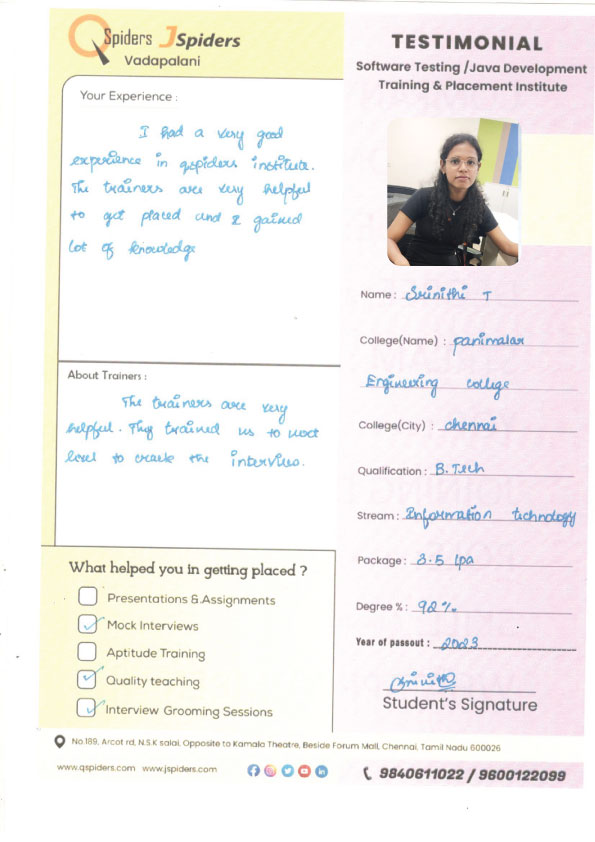 QSpiders JSpiders
Vadapalani
Your Experience :
I had a very good
experience in qspiders institute.
The trainers are very helpful
to get placed and I gained
lot of knowledge
About Trainers :
The trainers are very
helpful. They trained us to next
level to crack the interview.
What helped you in getting placed ?
Presentations & Assignments
Mock Interviews
Aptitude Training
Quality teaching
Interview Grooming Sessions
TESTIMONIAL
Software Testing /Java Development
Training & Placement Institute
Name : Srinithi T
College(Name) : panimalar
Engineering college
College(City) : chennai
Qualification : B.Tech
Stream : Information technology
Package : 3.5 lpa
Degree % : 92%
Year of passout : 2023
Srinithi
Student's Signature
No.189, Arcot rd, N.S.K salai, Opposite to Kamala Theatre, Beside Forum Mall, Chennai, Tamil Nadu 600026
www.qspiders.com www.jspiders.com
9840611022 / 9600122099